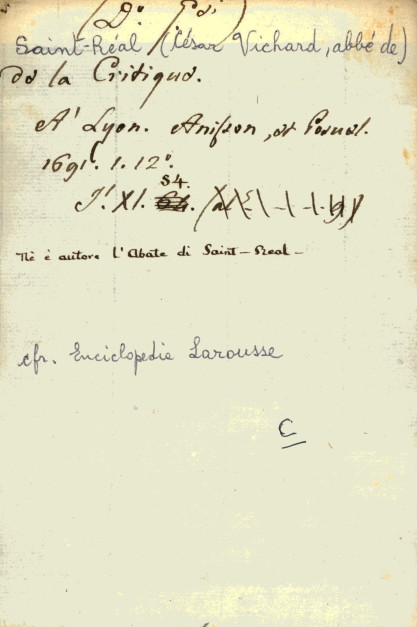 Saint-Réal (César Vichard, abbé de)
de la Critique.
A' Lyon. Anisson, et Posuel.
1691. 1. 12°.
54.
J. XI.
Ne è autore l'Abate di Saint-Real-
cfr. Enciclopedia Larousse
C